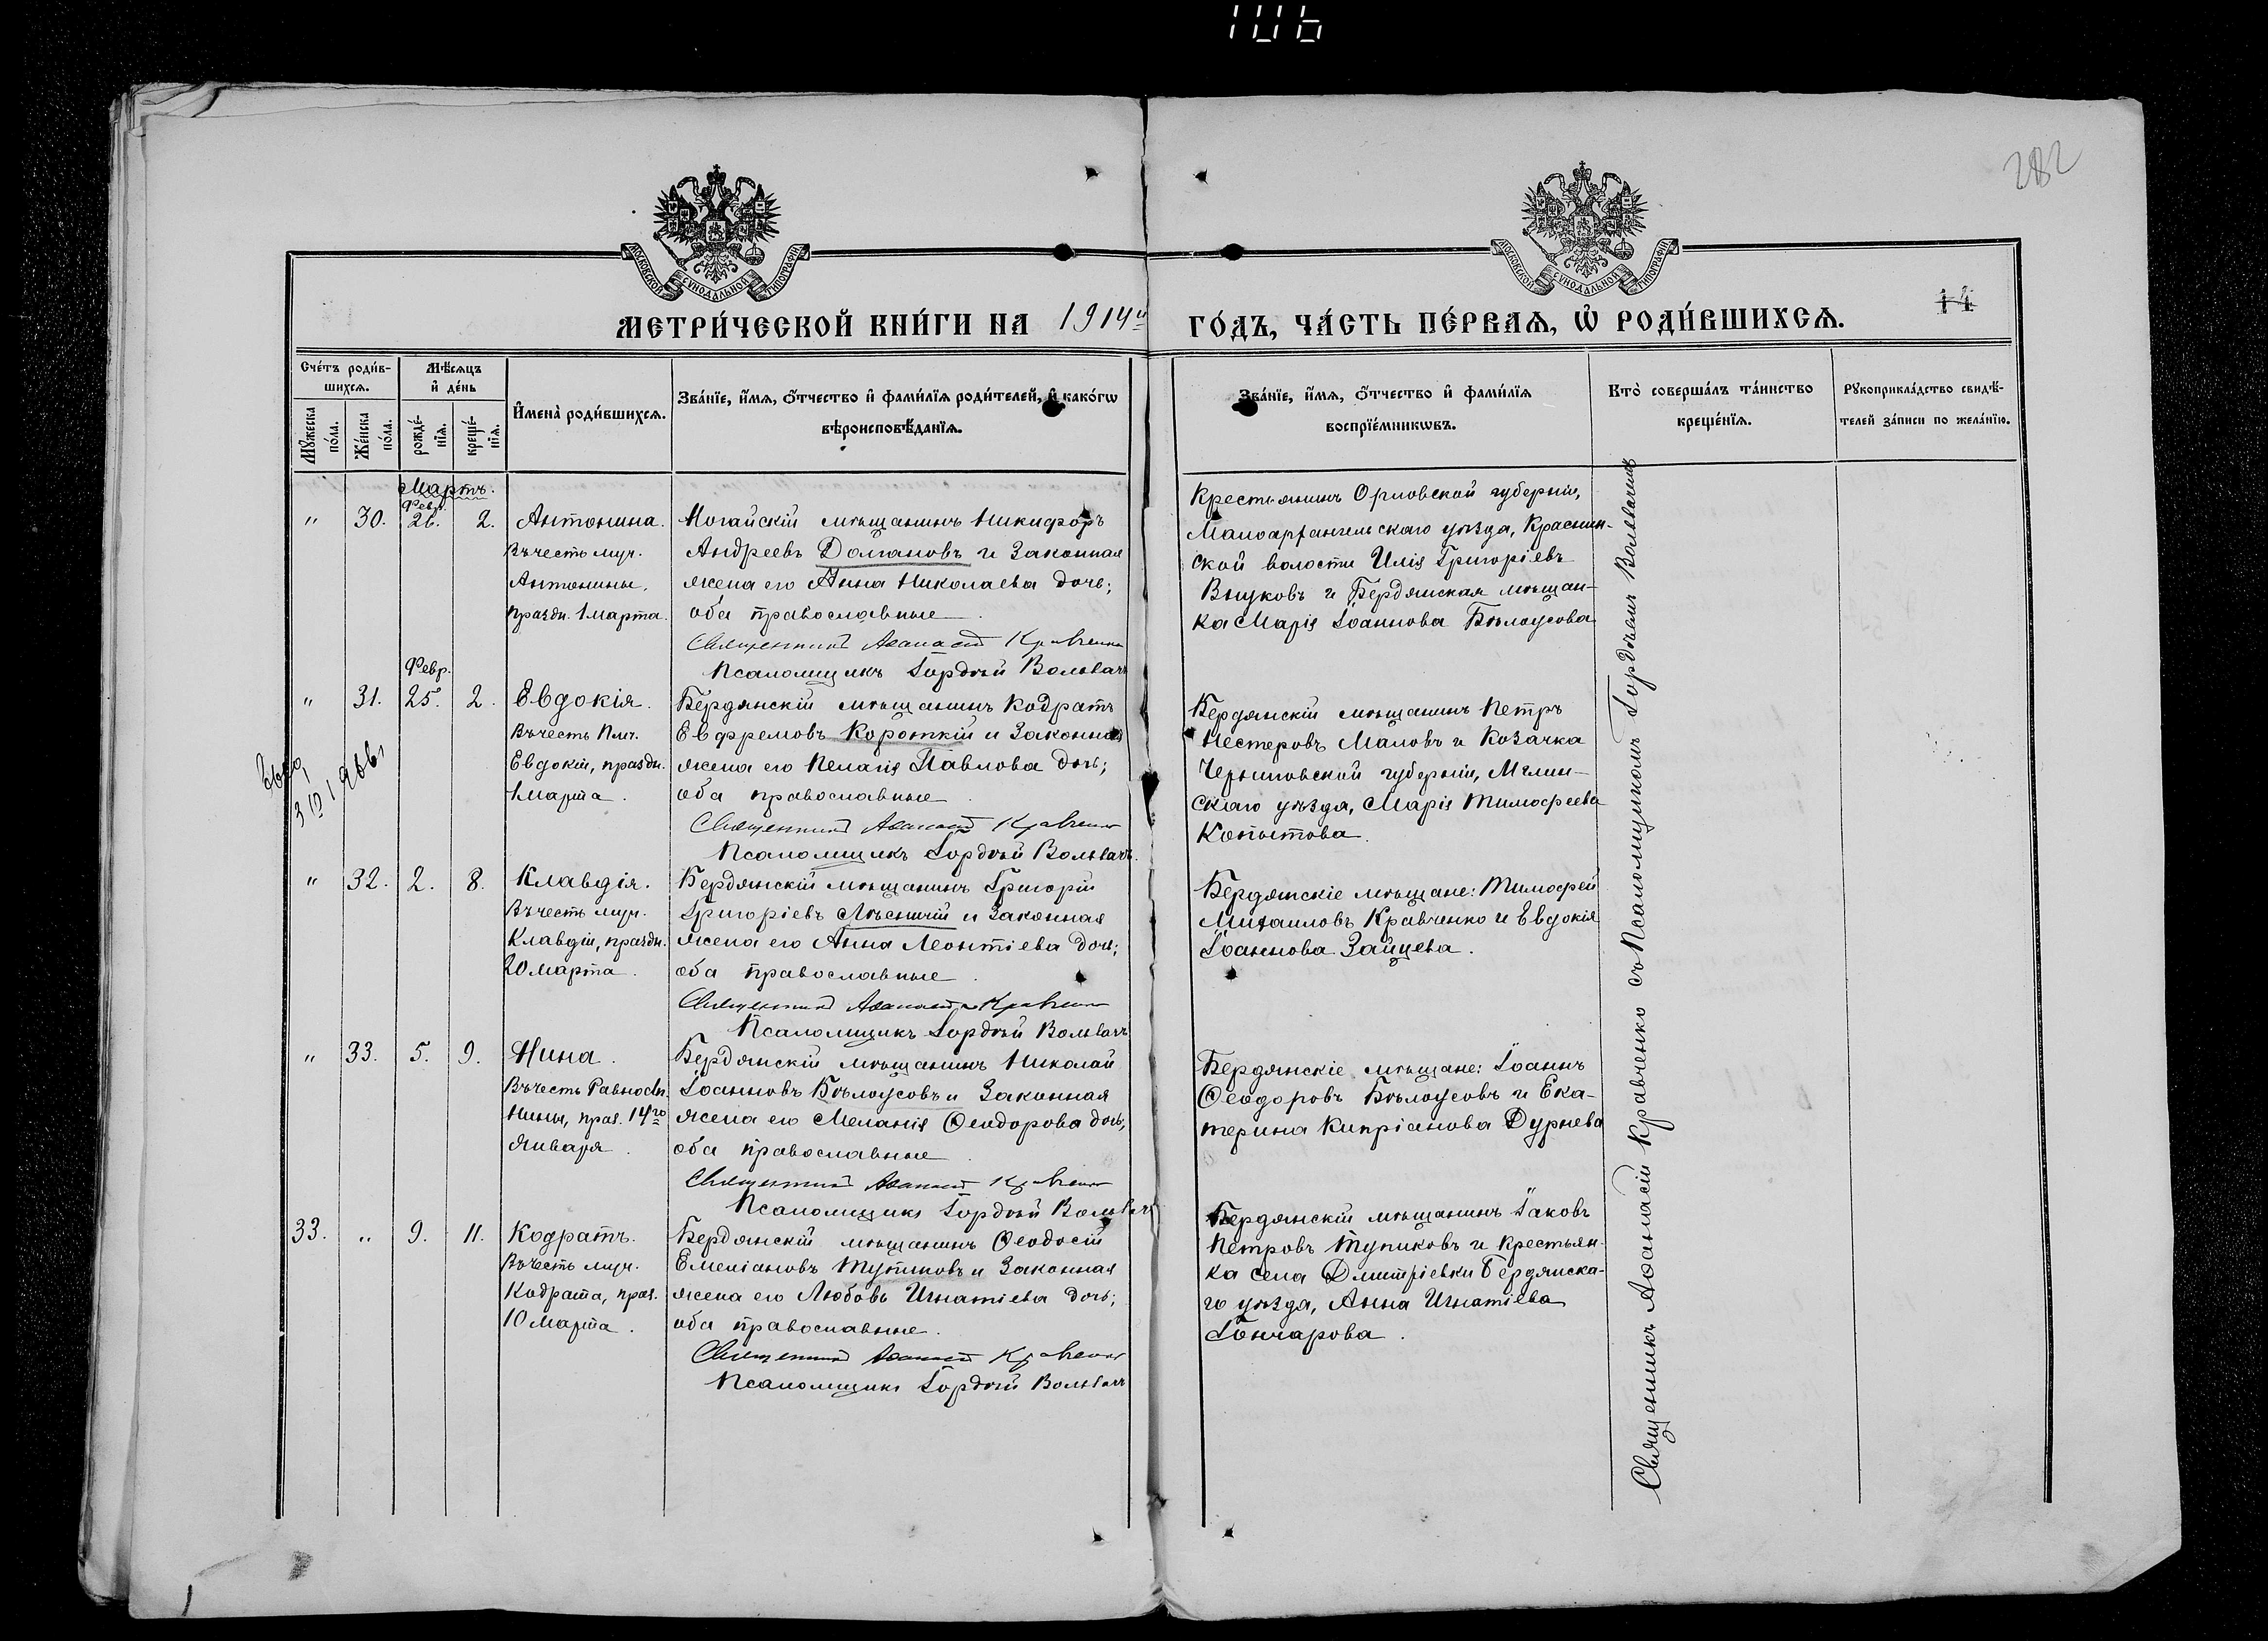 106
282
МОСКОВСКОЙ СѴНОДАЛЬНОЙ ТИПОГРАФІИ
МОСКОВСКОЙ СѴНОДАЛЬНОЙ ТИПОГРАФІИ
МЕТРИ́ЧЕСКОЙ КНИ́ГИ НА 1914й ГО́ДЪ, ЧА́СТЬ ПЕ́РВАѦ, Ѡ҆ РОДИ́ВШИХСѦ.
14
Сче́тъ роди́в-
шихсѧ.
Мꙋ́жеска
по́ла.
Же́нска
по́ла.
Мѣ́сѧцъ
и҆ де́нь
рожде́-
нїѧ.
креще́-
нїѧ.
И҆мена̀ роди́вшихсѧ.
Зва́нїе, и҆́мѧ, ѻ҆́тчество и҆ фами́лїѧ роди́телей, и҆ како́гѡ
вѣроисповѣ́данїѧ.
Зва́нїе, и҆́мѧ, ѻ҆́тчество и҆ фами́лїѧ
воспрїе́мникѡвъ.
Кто̀ соверша́лъ та́инство
креще́нїѧ.
Рꙋкоприкла́дство свидѣ́-
телей за́писи по жела́нїю.
Мартъ.
Февр.
" 30. 26. 2. Антонина.
Въ честь муч.
Антонины,
праздн. 1 марта.
Ногайскій мѣщанинъ Никифоръ
Андреевъ Долгановъ и законная
жена его Анна Николаева дочь;
оба православные.
Священникъ Аѳанасій Кравченко
Псаломщикъ Гордѣй Вольвачъ
Крестьянинъ Орловской губерніи,
Малоархангельскаго уѣзда, Краснин-
ской волости Илія Григоріевъ
Внуковъ и Бердянская мѣщан-
ка Марія Іоаннова Бѣлоусова
Февр.
" 31. 25. 2. Евдокія.
Въ честь Пмч.
Евдокіи, праздн.
1 марта.
Бердянскій мѣщанинъ Кодратъ
Евфремовъ Короткій и законная
жена его Пелагія Павлова дочь;
оба православные.
Священникъ Аѳанасій Кравченко
Псаломщикъ Гордѣй Вольвачъ.
Бердянскій мѣщанинъ Петръ
Нестеровъ Маловъ и козачка
Черниговской губерніи, Мглин-
скаго уѣзда, Марія Тимофеева
Копытова.
" 32. 2. 8. Клавдія.
Въ честь муч.
Клавдіи, праздн.
20 марта.
Бердянскій мѣщанинъ Григорій
Григоріевъ Лѣсничій и законная
жена его Анна Леонтіева дочь;
оба православные.
Священникъ Аѳанасій Кравченко
Псаломщикъ Гордѣй Вольвачъ
Бердянскіе мѣщане: Тимофей
Михаиловъ Кравченко и Евдокія
Іоаннова Зайцева.
" 33. 5. 9. Нина.
Въ честь Равноап.
Нины, праз. 14го
Января.
Бердянскій мѣщанинъ Николай
Іоанновъ Бѣлоусовъ и законная
жена его Меланія Ѳеодорова дочь,
оба православные.
Священникъ Аѳанасій Кравченко
Псаломщикъ Гордѣй Вольвачъ
Бердянскіе мѣщане: Іоаннъ
Ѳеодоровъ Бѣлоусовъ и Ека-
терина Кипріанова Дурнева
33. " 9. 11. Кодратъ.
Въ честь муч.
Кодрата, праз.
10 марта.
Бердянскій мѣщанинъ Ѳеодосій
Емеліановъ Тупиковъ и законная
жена его Любовь Игнатіева дочь;
оба православные.
Священникъ Аѳанасій Кравченко
Псаломщикъ Гордѣй Вольвачъ
Бердянскій мѣщанинъ Іаковъ
Петровъ Тупиковъ и крестьян-
ка села Дмитріевки Бердянска-
го уѣзда, Анна Игнатіева
Гончарова.
Священникъ Аѳанасій Кравченко съ Псаломщикомъ Гордѣемъ Вольвачемъ